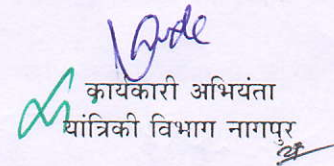 कार्यकारी अभियंता
यांत्रिकी विभाग नागपुर